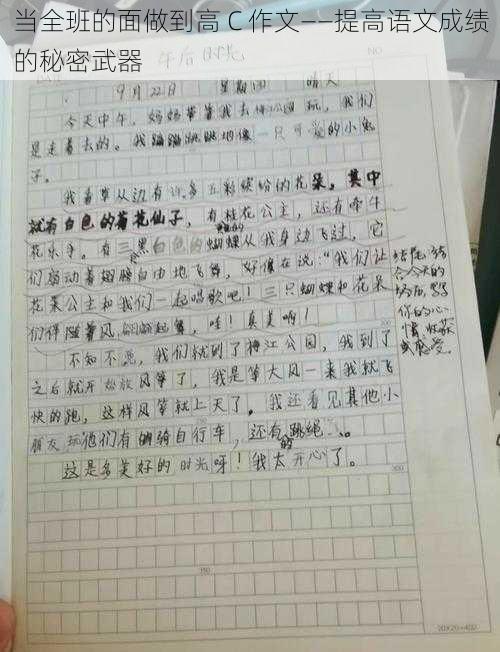 当全班的面做到高 C 作文——提高语文成绩
的秘密武器
午后时光
NO
9月22日 星期四 晴天
今天中午,妈妈带着我去梅江公园玩,我们
是走着去的。我蹦蹦跳跳地像一只可爱的小兔
子。
我看草丛边有许多五彩缤纷的花朵。其中
就有白色的菊花仙子,有桂花公主,还有牵牛
花乐手。有三只黑白色的蝴蝶从我身边飞过,它
们扇动着翅膀自由地飞舞,好像在说:“我们让
花朵公主和我们一起唱歌吧!三只蝴蝶和花朵
们伴随着风,翩翩起舞,哇!真美啊!
不知不觉,我们就到了梅江公园,我到了
之后就开始放风筝了,我是等大风一来我就飞
快的跑,这样风筝就上天了。我还看见其他小
朋友玩他们有的骑自行车,还有的跳绳……。
这是多美好的时光呀!我太开心了。
结尾,结
合今天的
场景,写写
你的心
情、收获
或感受。
200
300
350
20X20=400